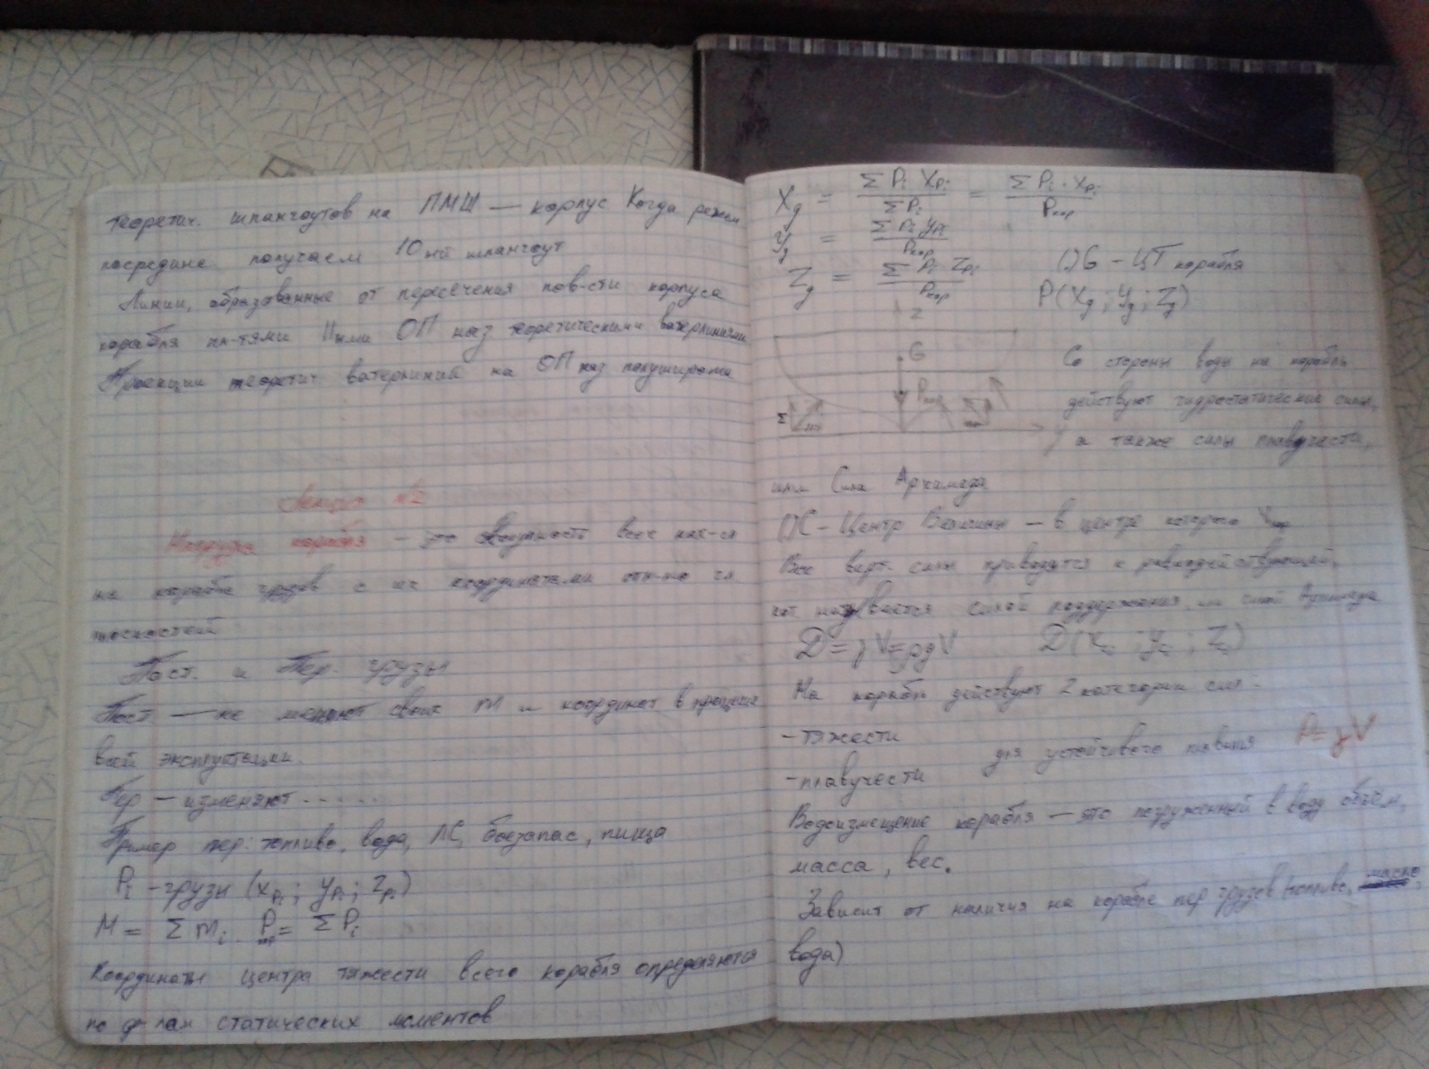 теоретич. шпангоутов на ПМШ — корпус Когда режем
посредине получаем 10ый шпангоут
Линии, образованные от пересечения пов-сти корпуса
корабля пл-тями ||ными ОП наз теоретическими ватерлиниями
Проекции теоретич ватерлиний на ОП наз полуширота
Лекция №2
Нагрузка корабля — это совокупность всех нах-ся
на корабле грузов с их координатами отн-но
плоскостей
Пост. и Пер. грузы
Пост — не меняют своих m и координат в процессе
всей эксплуатации.
Пер — изменяют ......
Пример пер: топливо, вода, ЛС, боезапас, пища
Pi - грузы (xPi; yPi; zPi)
M = Σ mi. Pкор = Σ Pi
Координаты центра тяжести всего корабля определяются
по ф-лам статических моментов
Xg = Σ Pi XPi / Σ Pi = Σ Pi · XPi / Pкор
Yg = Σ Pi yPi / Pкор
Zg = Σ Pi ZPi / Pкор
()G - ЦТ корабля
P(Xg; Yg; Zg)
z
G
Pкор
y
Со стороны воды на корабль
действуют гидростатические силы,
а также силы плавучести,
или Сила Архимеда
()C - Центр Величины — в центре которого
Все верт. силы приводятся к равнодействующей,
кот называется силой поддержания или силой Архимеда
D = γV = ρgV D(Xc; yc; Zc)
На корабль действуют 2 категории сил:
- тяжести
- плавучести
для устойчивого плавания P=γV
Водоизмещение корабля — это погруженный в воду объём,
масса, вес.
Зависит от наличия на корабле пер грузов (топливо, масло,
вода)